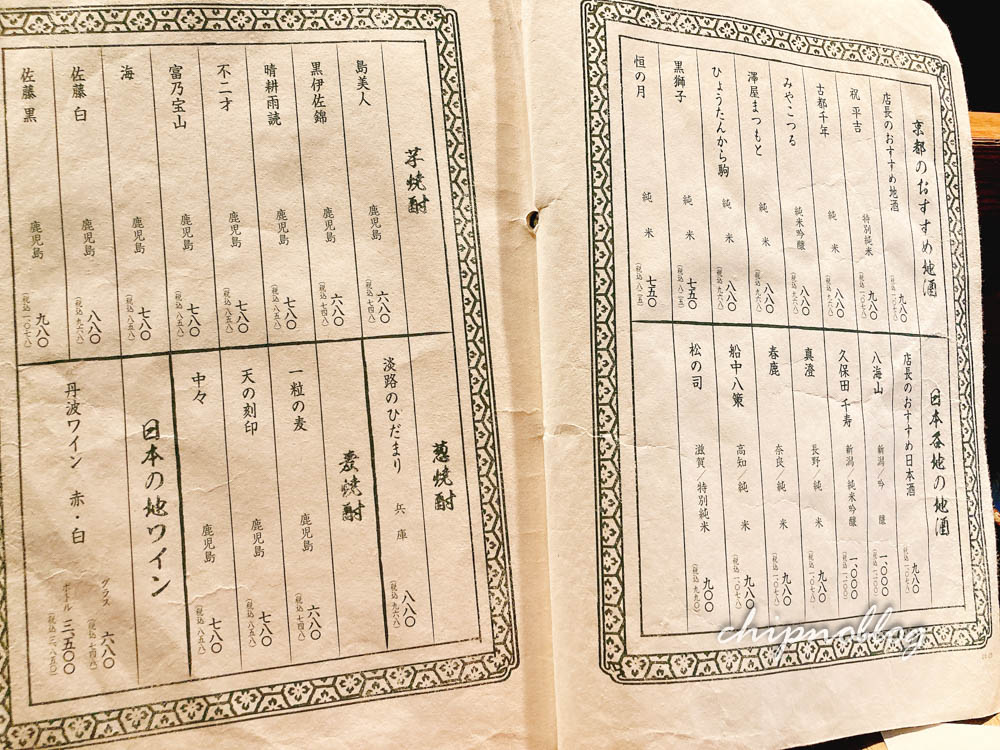 京都のおすすめ地酒
店長のおすすめ地酒 九八〇 (税込 一、〇七八)
祝 平吉 特別純米 九八〇 (税込 一、〇七八)
古都千年 純米 八八〇 (税込 九六八)
みやこつる 純米吟醸 八八〇 (税込 九六八)
澤屋まつもと 純米 八八〇 (税込 九六八)
ひょうたんから駒 純米 八八〇 (税込 九六八)
黒獅子 純米 七五〇 (税込 八二五)
恒の月 純米 七五〇 (税込 八二五)
日本各地の地酒
店長のおすすめ日本酒 九八〇 (税込 一、〇七八)
八海山 新潟/吟醸 一、〇〇〇 (税込 一、一〇〇)
久保田 千寿 新潟/純米吟醸 一、〇〇〇 (税込 一、一〇〇)
真澄 長野/純米 九八〇 (税込 一、〇七八)
春鹿 奈良/純米 九八〇 (税込 一、〇七八)
船中八策 高知/純米 九八〇 (税込 一、〇七八)
松の司 滋賀/特別純米 九〇〇 (税込 九九〇)
芋焼酎
島美人 鹿児島 六八〇 (税込 七四八)
黒伊佐錦 鹿児島 六八〇 (税込 七四八)
晴耕雨読 鹿児島 七八〇 (税込 八五八)
不二才 鹿児島 七八〇 (税込 八五八)
富乃宝山 鹿児島 七八〇 (税込 八五八)
海 鹿児島 七八〇 (税込 八五八)
佐藤 白 鹿児島 八八〇 (税込 九六八)
佐藤 黒 鹿児島 九八〇 (税込 一、〇七八)
葱焼酎
淡路のひだまり 兵庫 八八〇 (税込 九六八)
麦焼酎
一粒の麦 鹿児島 六八〇 (税込 七四八)
天の刻印 鹿児島 七八〇 (税込 八五八)
中々 鹿児島 七八〇 (税込 八五八)
日本の地ワイン
丹波ワイン 赤・白
グラス 六八〇 (税込 七四八)
ボトル 三、五〇〇 (税込 三、八五〇)
chipnoblog